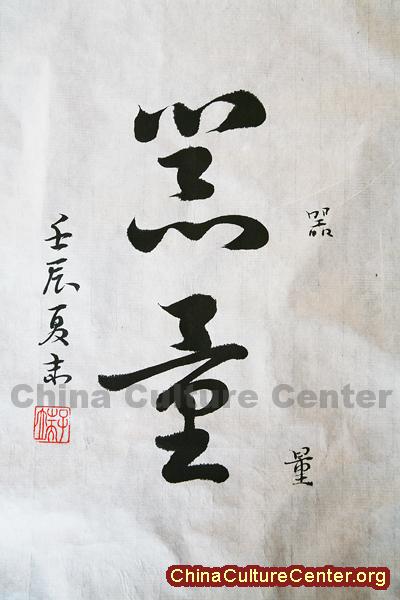 器
量
器量
壬辰夏末
China Culture Center
ChinaCultureCenter.org